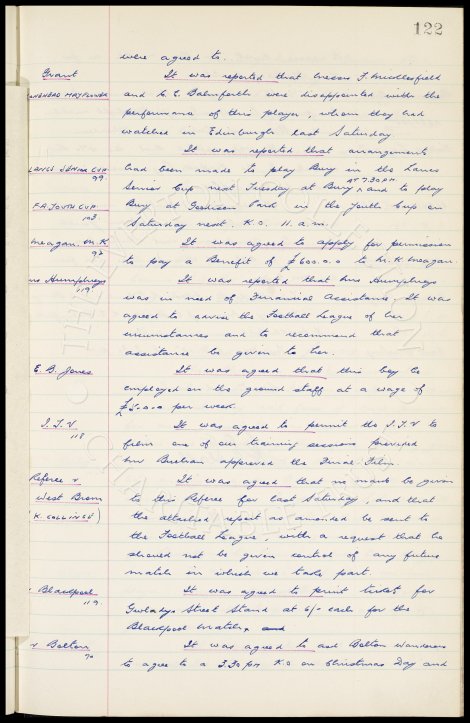 122
were agreed to.
Grant It was reported that Messrs F. Micklesfield
and C. E. Balmforth were disappointed with the
MAYFLOWER performance of this player, whom they had
watched in Edinburgh last Saturday
It was reported that arrangements
LANCS SENIOR CUP had been made to play Bury in the Lancs
99 Senior Cup next Tuesday at Bury AT 7.30 PM and to play
F.A. YOUTH CUP Bury at Goodison Park in the Youth Cup on
103 Saturday next. K.O. 11 a.m.
Meagan. M.K It was agreed to apply for permission
92 to pay a Benefit of £600.0.0 to M. K Meagan
Mrs Humphreys It was reported that Mrs Humphreys
119 was in need of Financial Assistance. It was
agreed to advise the Football League of her
circumstances and to recommend that
assistance be given to her.
E. B. Jones It was agreed that this boy be
employed on the ground staff at a wage of
£5.0.0 per week.
I.T.V It was agreed to permit the I.T.V to
118 film one of our training sessions provided
Mr Buchan approved the Final Film.
Referee v It was agreed that no mark be given
West Brom to this Referee for last Saturday, and that
(K. COLLINGE) the attached report as amended be sent to
the Football League, with a request that he
should not be given control of any future
match in which we took part
v Blackpool It was agreed to print tickets for
119 Gwladys Street Stand at 6/- each for the
Blackpool match, and
v Bolton It was agreed to ask Bolton Wanderers
70 to agree to a 2.30 pm K.O on Christmas Day and